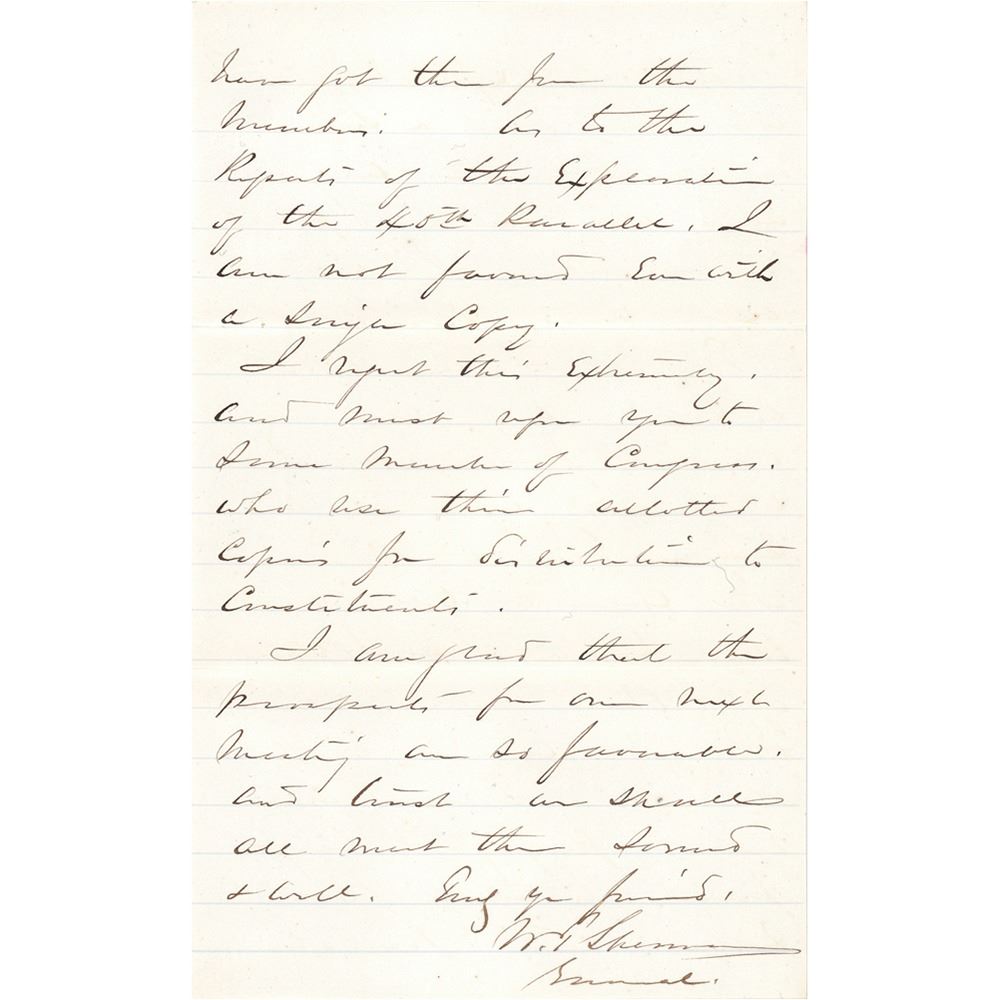 have got them from the
Members. As to the
Reports of the Exploration
of the 40th Parallel. I
am not favored Even with
a Single Copy.
I regret this Extremely,
and must refer you to
Some Member of Congress.
who use their allotted
Copies for distribution to
Constituents.
I am glad that the
prospects for our next
Meeting are so favorable.
and trust we shall
all meet then Sound
& well. Truly yr friend,
W. T. Sherman
General.